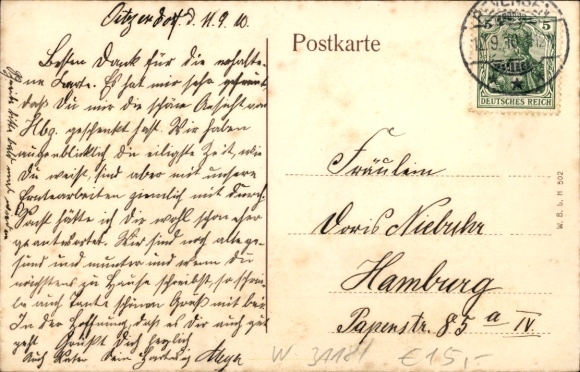 Oitzendorf d. 11.9.10.
Besten Dank für die erhalte-
ne Karte. Es hat mir sehr gefreut
daß Du mir die schöne Ansicht von
Hbg. geschenkt hast. Wir haben
augenblicklich die eiligste Zeit, wie
Du weißt, sind aber mit unsern
Erntearbeiten ziemlich mit durch.
Sonst hätte ich Dir wohl schon eher
geantwortet. Wir sind noch alle ge-
sund und munter und wenn Du
nächstens zu Hause schreibst, so schrei-
be auch Tante schönen Gruß mit bei
In der Hoffnung, daß es Dir auch gut
geht Grüßt Dich herzlich
Auch Kusen Dein
Schreibe bitte bald mal wieder
Postkarte
5 5
12.9.10
DEUTSCHES REICH
Fräulein
Doris Niebuhr
Hamburg
Papenstr. 85 a IV.
W. B. b. H 502
W 31181 € 15,-